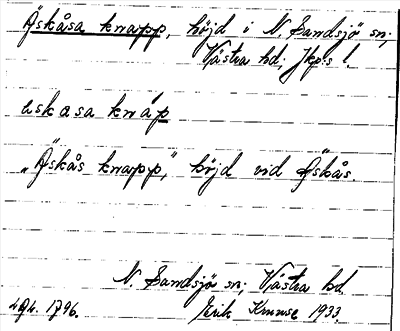 Åskåsa knapp, höjd i N. Sandsjö sn;
Västra hd; Jkp:s l.
åskasa knáp
"Åskås knapp," höjd vid Åskås.
N. Sandsjö sn; Västra hd
Erik Krusse 1933.